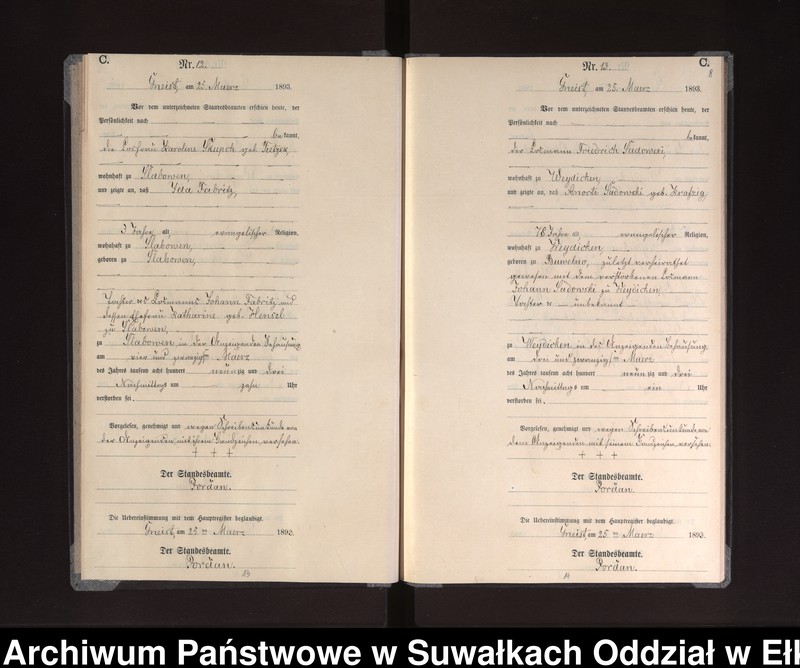 C.
Nr. 12.
Gneist, am 25. Maerz 1893.
Vor dem unterzeichneten Standesbeamten erschien heute, der
Persönlichkeit nach
bekannt,
die Losfrau Karoline Skupch geb.
wohnhaft zu Slabowen,
und zeigte an, daß Ida Fabritz,
3 Jahre alt, evangelischer Religion,
wohnhaft zu Slabowen,
geboren zu Slabowen,
Tochter des Losmanns Johann Fabritz und
dessen Ehefrau Katharine geb. Hensel
zu Slabowen,
zu Slabowen in der Anzeigenden Behausung
am vier und zwanzigsten Maerz
des Jahres tausend acht hundert neunzig und drei
Nachmittags um zehn Uhr
verstorben sei.
Vorgelesen, genehmigt und wegen Schreibensunkunde von
der Anzeigenden mit ihrem Handzeichen versehen.
+ + +
Der Standesbeamte.
Pordan.
Die Uebereinstimmung mit dem Hauptregister beglaubigt.
Gneist, am 25ten Maerz 1893.
Der Standesbeamte.
Pordan.
C.
8
Nr. 13.
Gneist, am 25. Maerz 1893.
Vor dem unterzeichneten Standesbeamten erschien heute, der
Persönlichkeit nach
bekannt,
der Losmann Friedrich Sadowski,
wohnhaft zu Weydicken,
und zeigte an, daß Sadowski geb.
76 Jahre alt, evangelischer Religion,
wohnhaft zu Weydicken,
geboren zu zuletzt verheirathet
gewesen mit dem verstorbenen Losmann
Johann Sadowski zu Weydicken,
Tochter de unbekannt
zu Weydicken in des Anzeigenden Behausung
am drei und zwanzigsten Maerz
des Jahres tausend acht hundert neunzig und drei
Nachmittags um ein Uhr
verstorben sei.
Vorgelesen, genehmigt und wegen Schreibensunkunde von
dem Anzeigenden mit seinem Handzeichen versehen.
+ + +
Der Standesbeamte.
Pordan.
Die Uebereinstimmung mit dem Hauptregister beglaubigt.
Gneist, am 25ten Maerz 1893.
Der Standesbeamte.
Pordan.
Archiwum Państwowe w Suwałkach Oddział w Eł